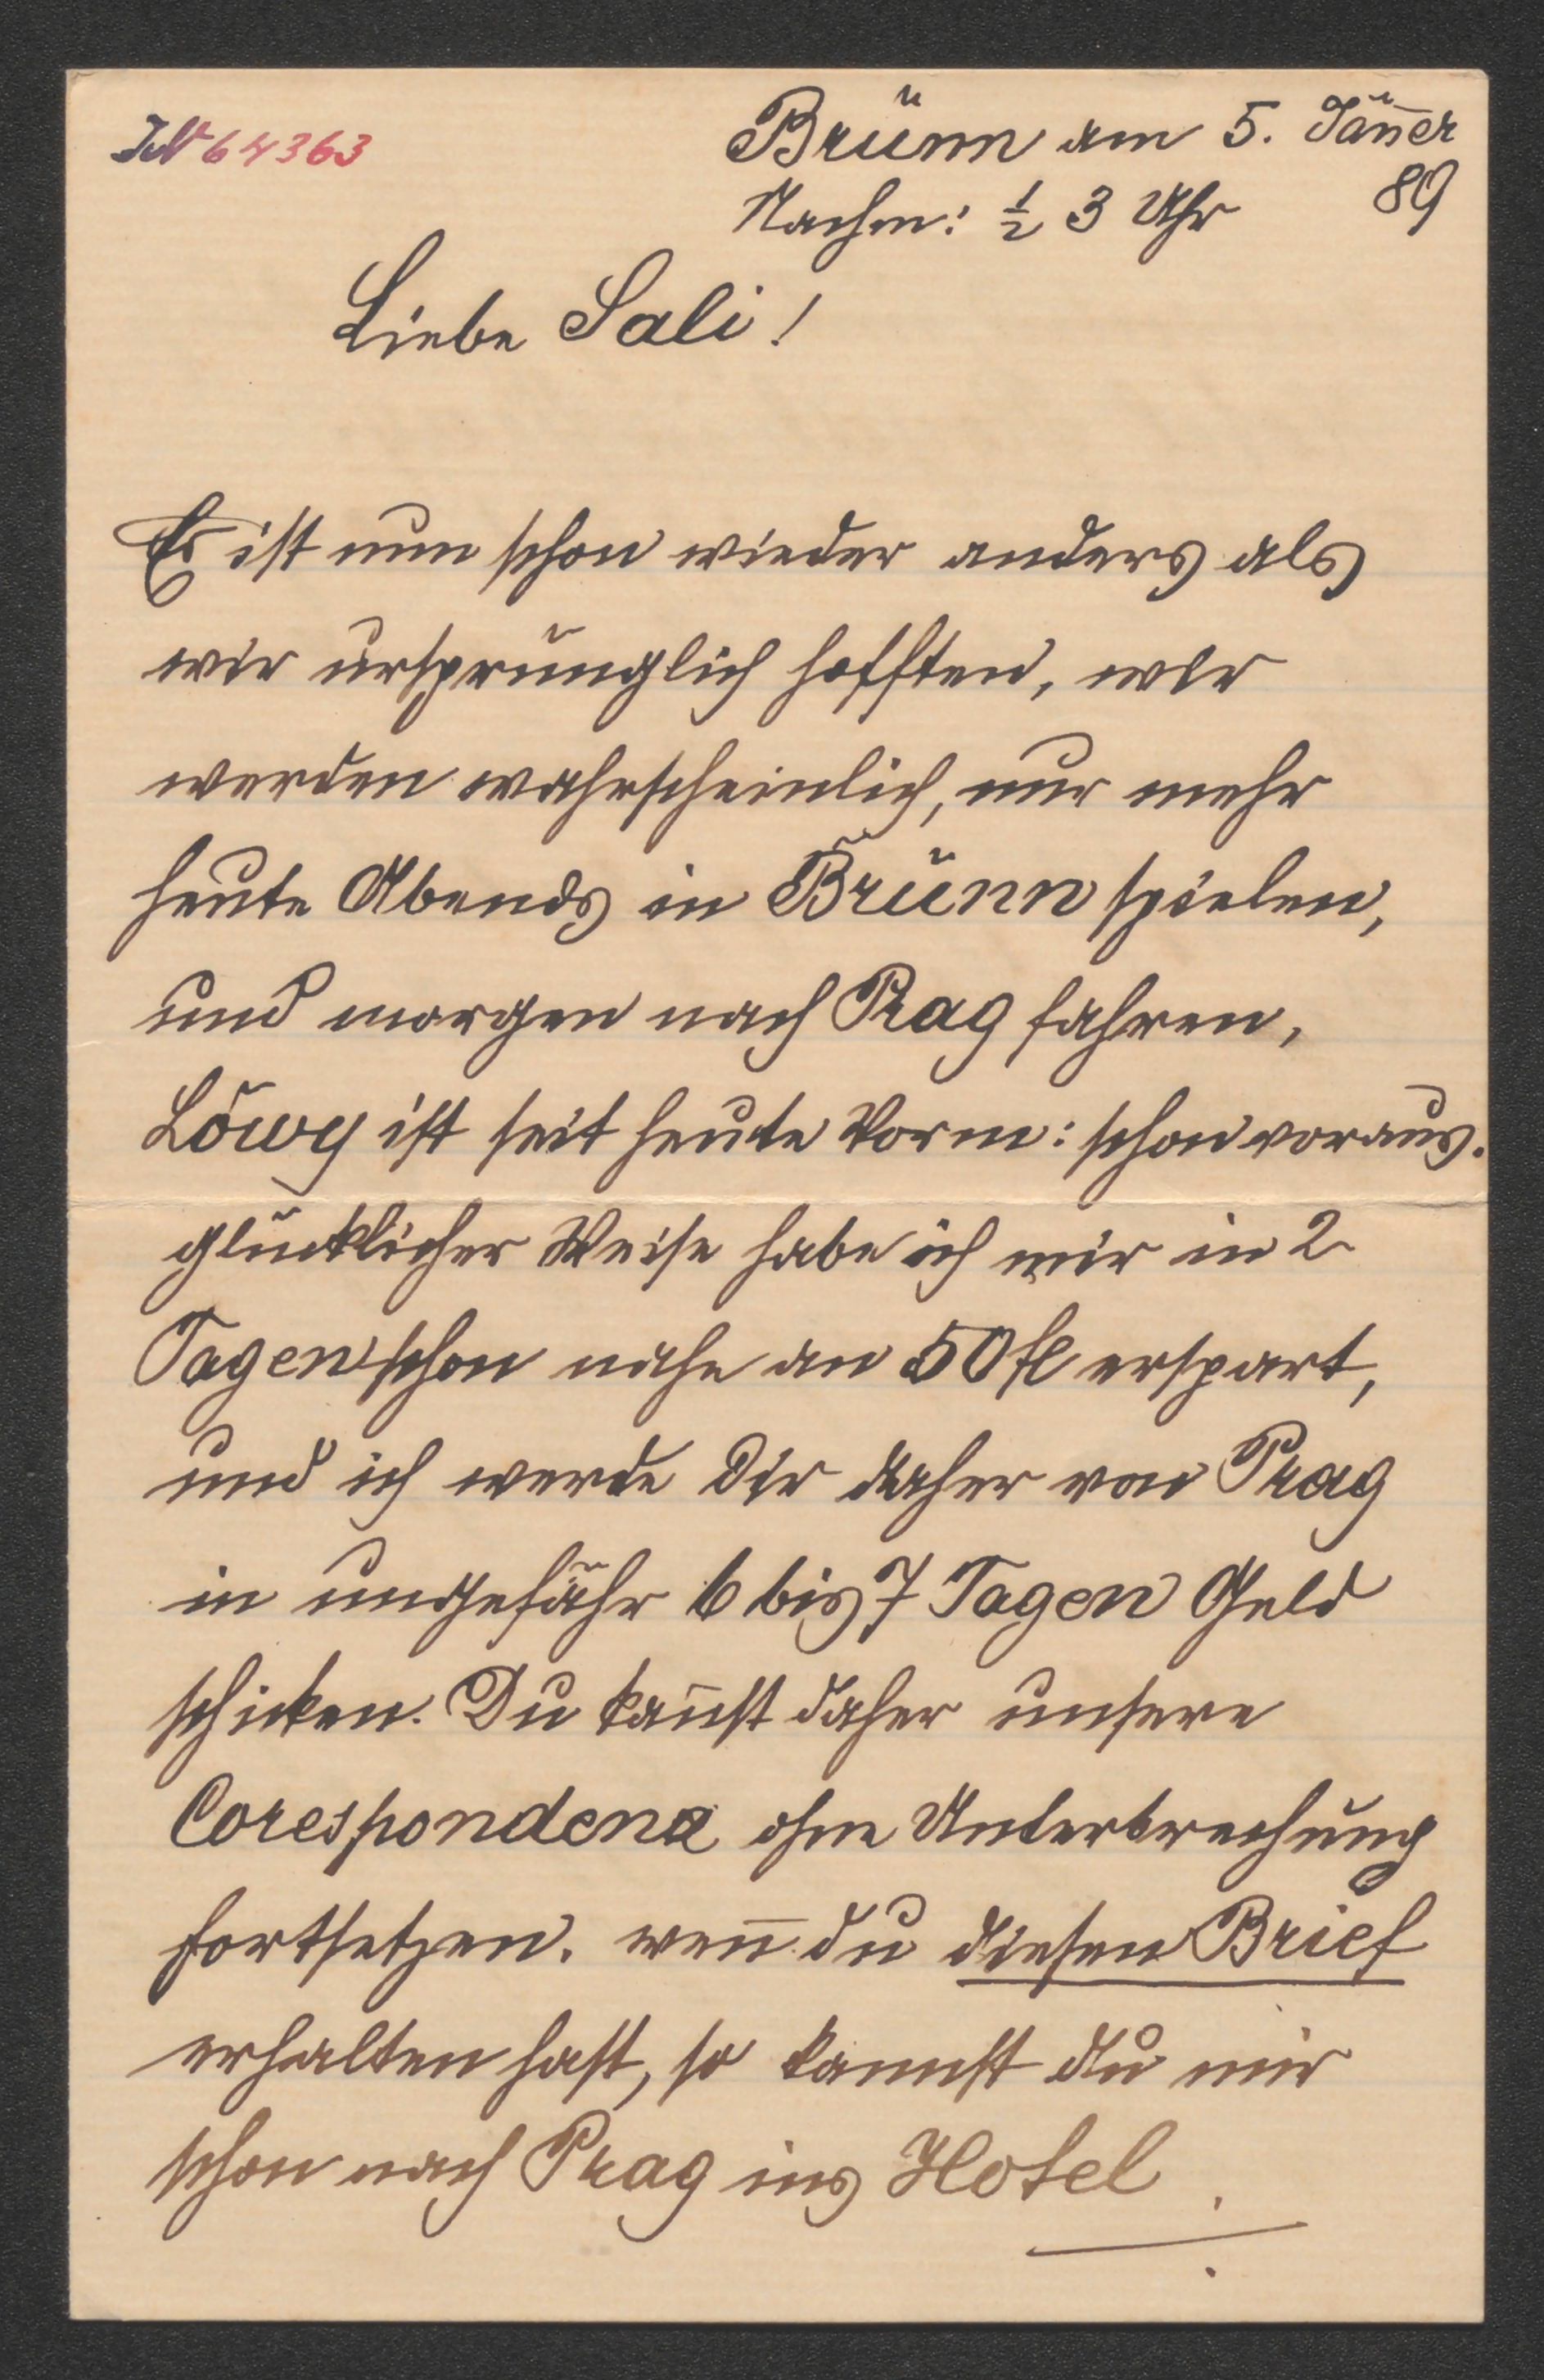 IN 64363
Brünn am 5. Jäner̄
Nachm: ½ 3 Uhr 89
Liebe Sali!
Es ist nun schon wieder anders als
wir ursprünglich hofften, wir
werden wahrscheinlich, nur mehr
heute Abends in Brünn spielen,
und morgen nach Prag fahren,
Löwy ist seit heute Vorm: schon voraus.
glücklicher Weise habe ich mir in 2
Tagen schon nahe an 50 fl erspart,
und ich werde Dir daher von Prag
in ungefähr 6 bis 7 Tagen Geld
schicken. Du kan̄st daher unsere
Corespondenz ohne Unterbrechung
fortsetzen. wen̄ du diesen Brief
erhalten hast, so kannst du mir
schon nach Prag ins Hotel